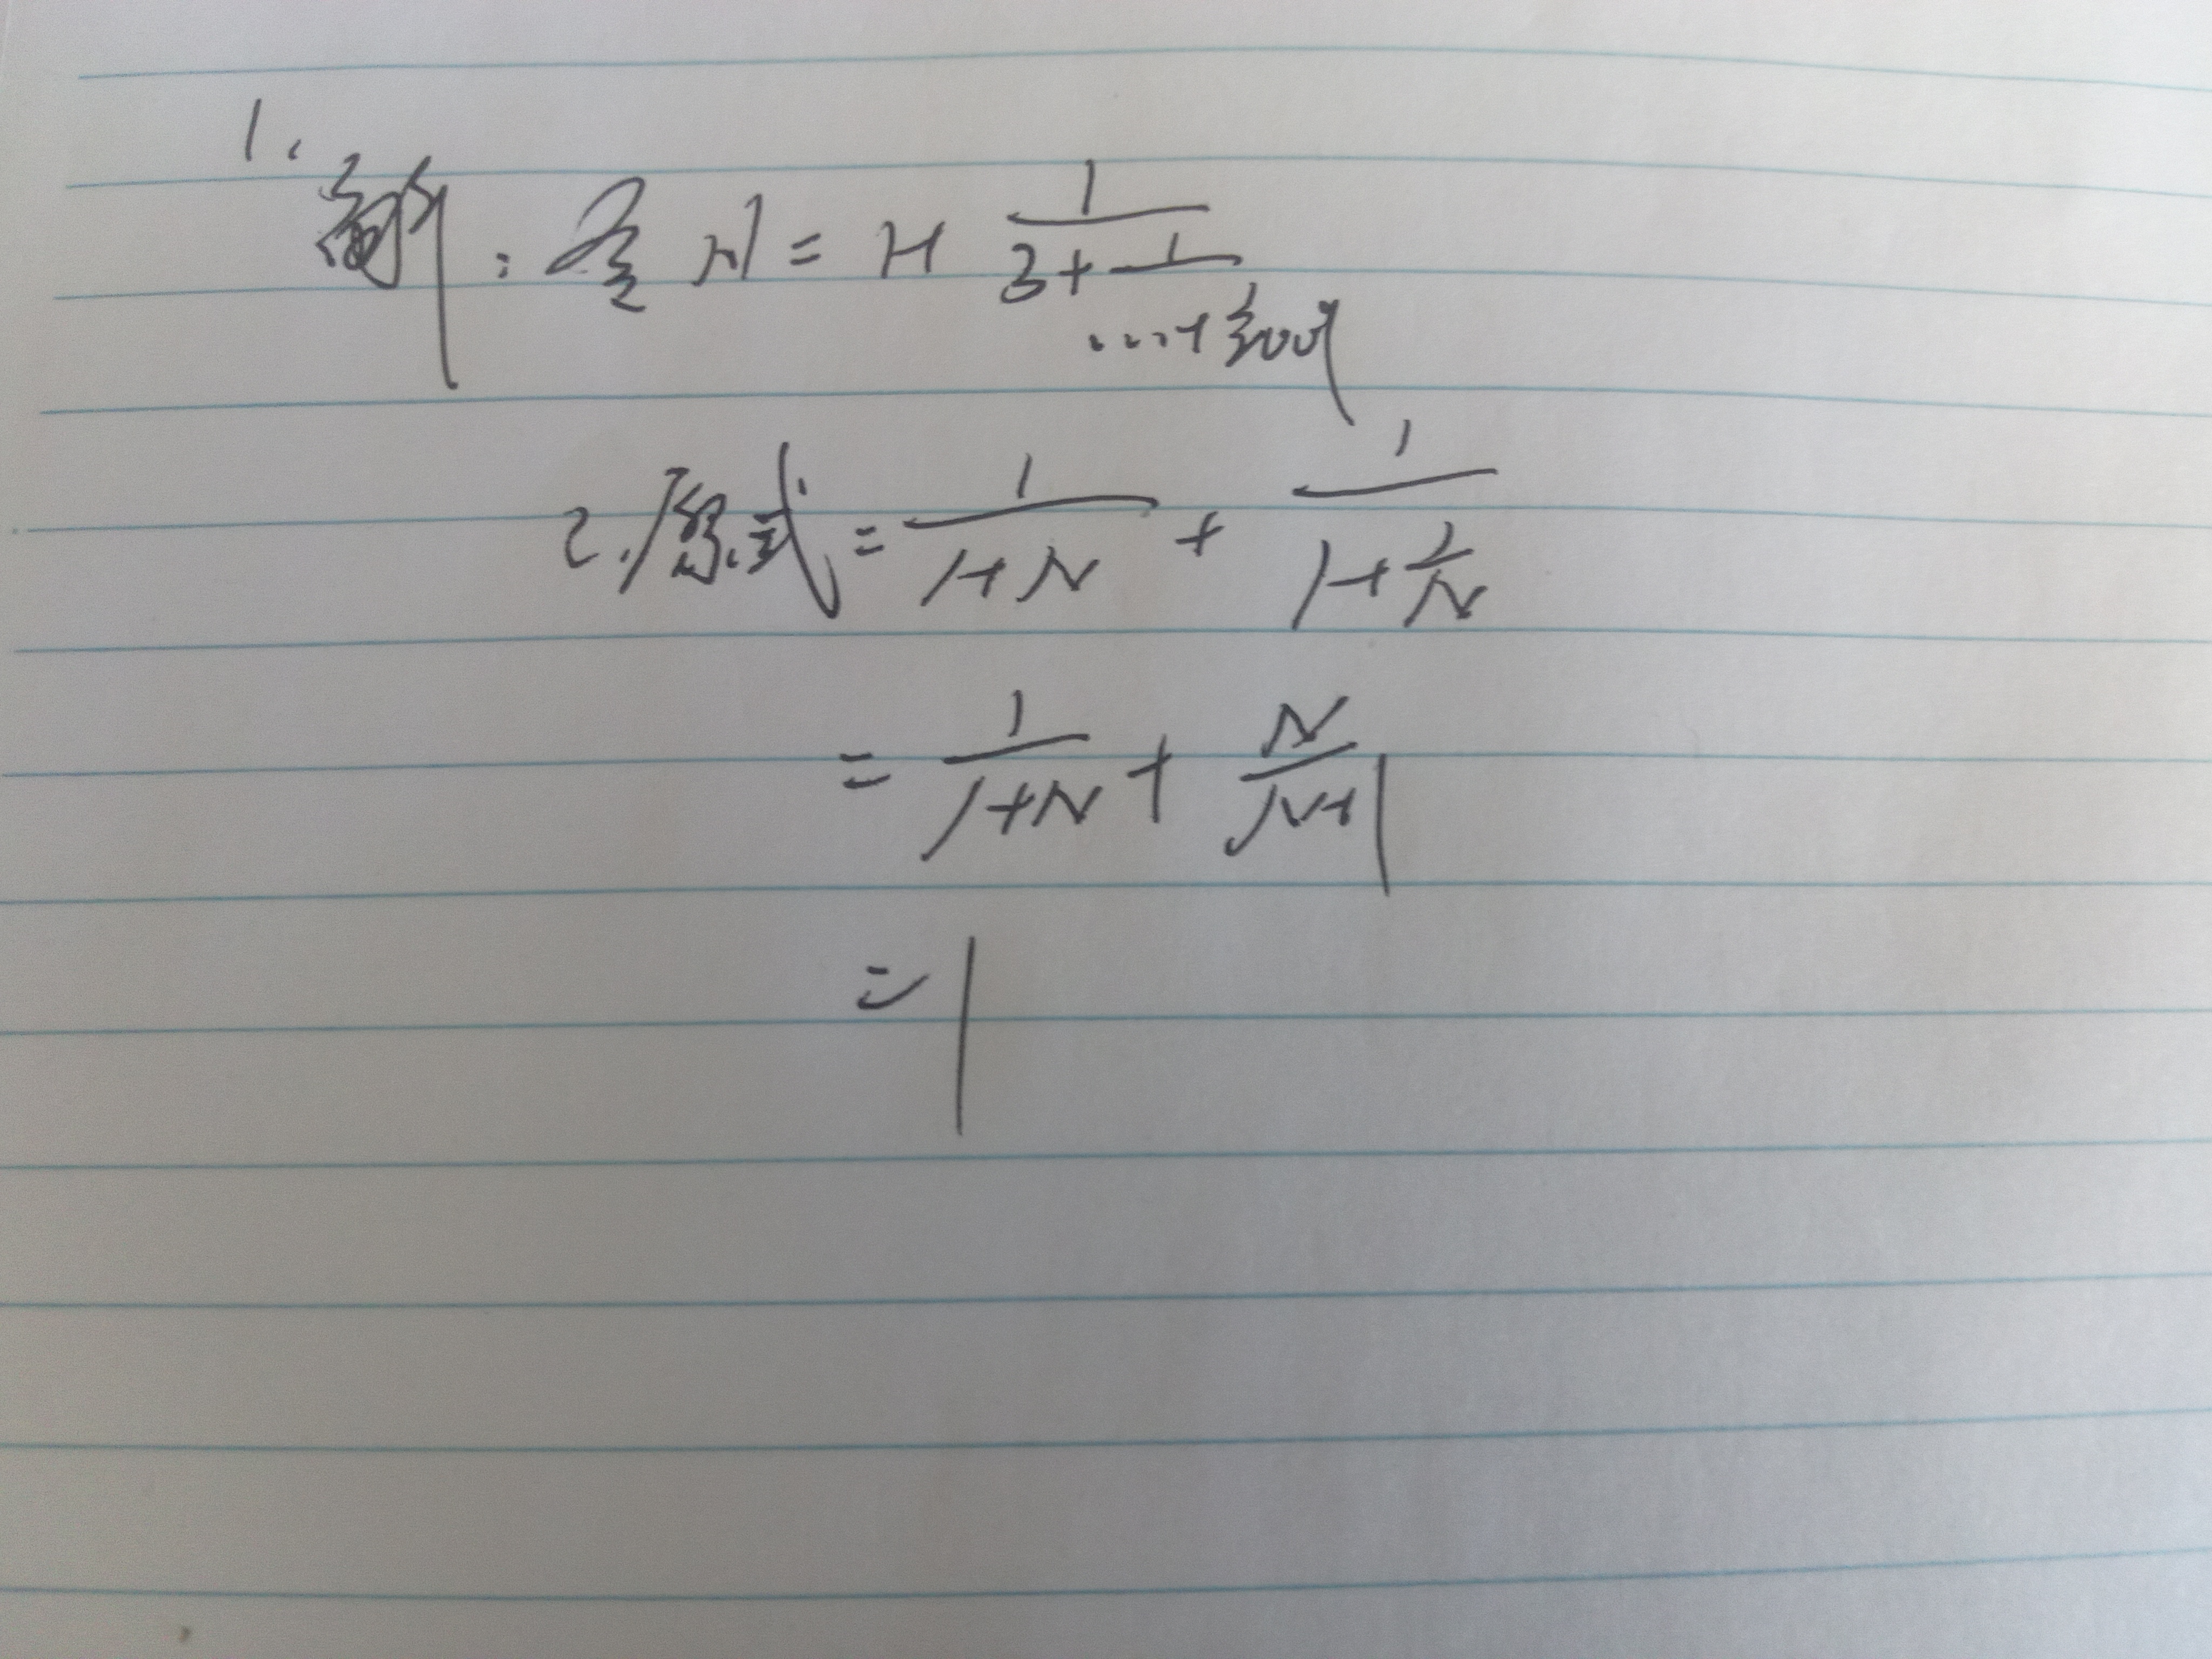 1.
解：令 N = 1+ \frac{1}{3+\frac{1}{....+}}
原式 = \frac{1}{1+N} + \frac{1}{1+\frac{1}{N}}
= \frac{1}{1+N} + \frac{N}{N+1}
= 1